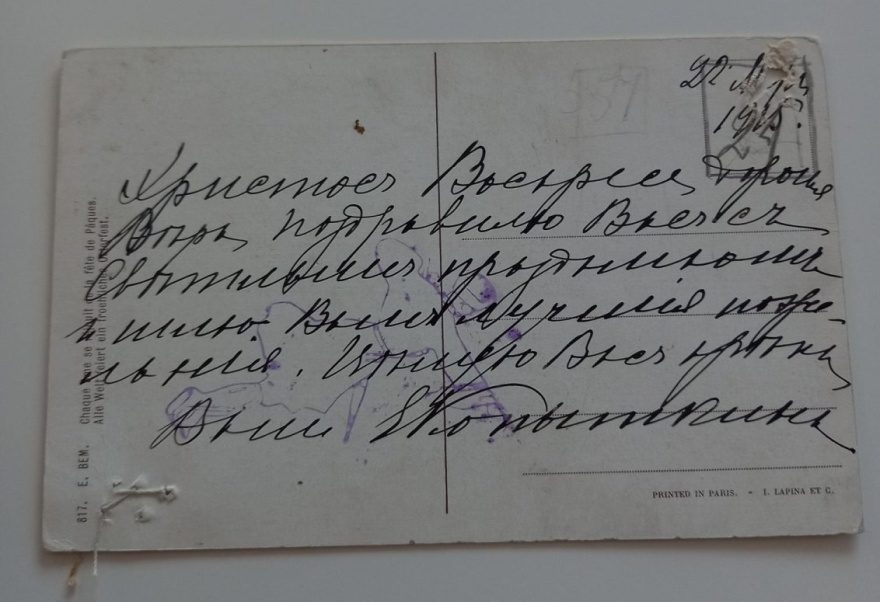 22 М
1915.
Христосъ Воскресе, дорогая
Вѣра, поздравляю Васъ съ
Свѣтлымъ праздникомъ
и шлю Вамъ лучшія поже-
ланія. Цѣлую Васъ крѣпко,
Ваш Копыткина
817. E. BEM. Chaque âme se réjouit de la fête de Pâques.
Alle Welt feiert ein froehliches Osterfest.
PRINTED IN PARIS. - I. LAPINA ET C.